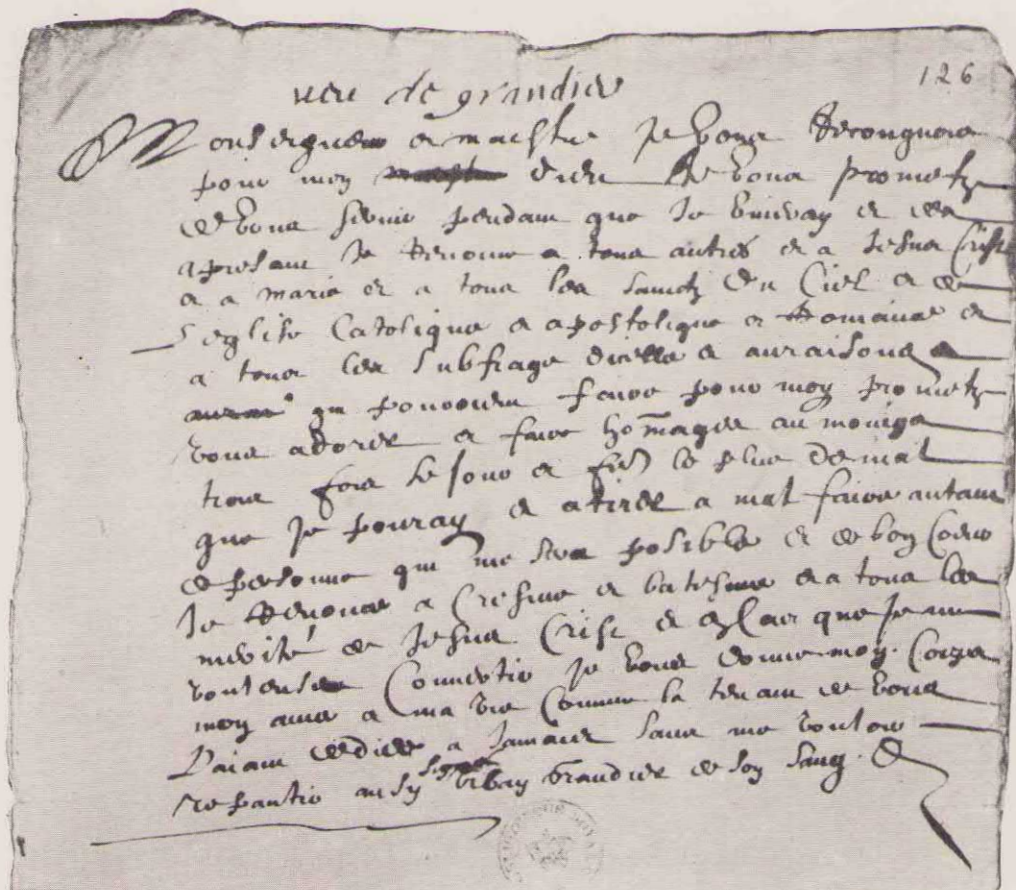 126
veu de grandier
Monseigneur et maistre Je vous Recongnois
pour mon dieu et Je vous prometz
de vous servir pendant que Je vivray et des
apresant Je Renonce a tous autres et a Jesus Crist
et a marie et a tous les sainctz du Ciel et a
l'eglise Catolique et apostolique et Romaine et
a tous les subfrage dicelle et auraisons
qui pouroient faire pour moy prometz
vous adorer et faire homages au moings
trois fois le jour et fere le plus de mal
que Je pouray et atirer a mal faire autant
de personne qui me sera posible et de bon Coeur
Je Renonce a Cresme et batesme et a tous les
merité de Jesus Crist et an Cas que Je me
voulensse Convertir Je vous donne mon Corps
mon ame et ma vie Comme la tenant de vous
L'aiant dediee a Jamais sans me vouloir
repantir ansy signé Urbain Grandier de son sang